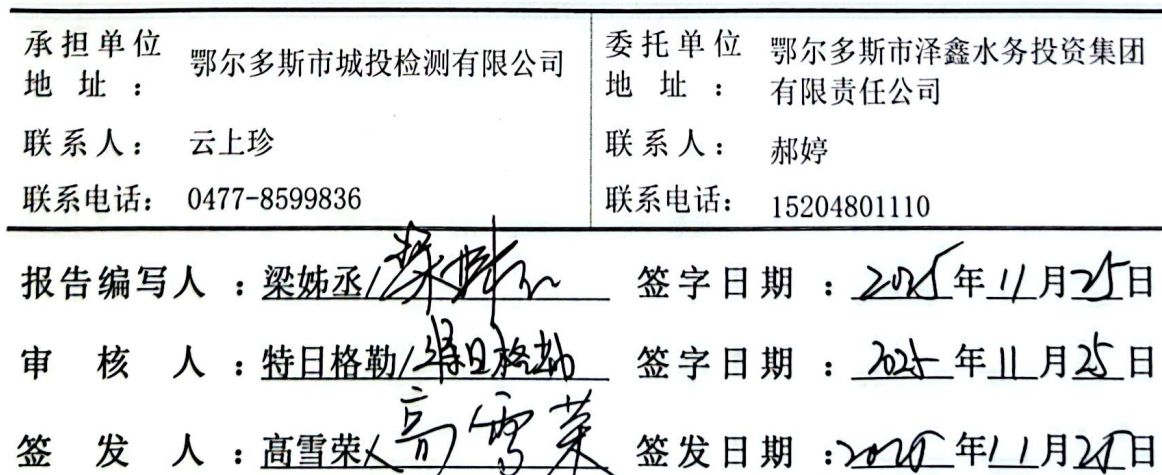 承担单位
地址： 鄂尔多斯市城投检测有限公司
联系人： 云上珍
联系电话： 0477-8599836
委托单位
地址： 鄂尔多斯市泽鑫水务投资集团
有限责任公司
联系人： 郝婷
联系电话： 15204801110
报告编写人：梁姊丞/梁姊丞 签字日期：2025年11月25日
审核人：特日格勒/特日格勒 签字日期：2025年11月25日
签发人：高雪荣/高雪荣 签发日期：2025年11月25日